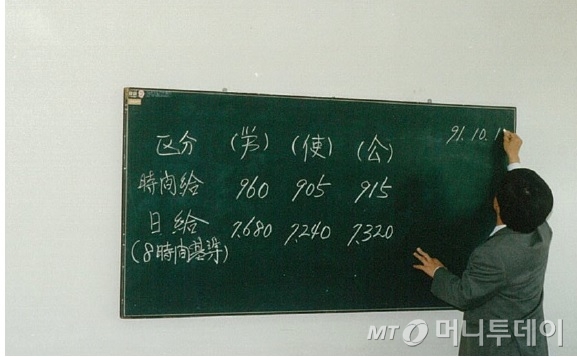 91.10.1
区分 (労) (使) (公)
時間給 960 905 915
日給 7,680 7,240 7,320
(8時間基準)
MT 머니투데이